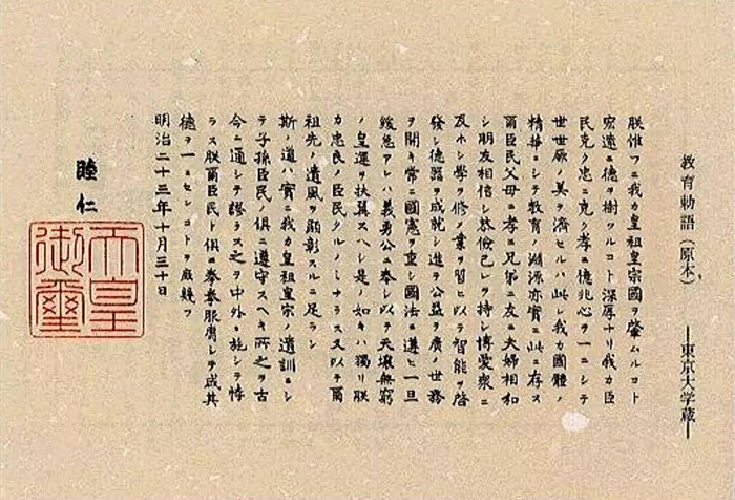 教育勅語(原本)　―東京大学蔵―
朕惟フニ我カ皇祖皇宗國ヲ肇ムルコト
宏遠ニ德ヲ樹ツルコト深厚ナリ我カ臣
民克ク忠ニ克ク孝ニ億兆心ヲ一ニシテ
世世厥ノ美ヲ濟セルハ此レ我カ國體ノ
精華ニシテ教育ノ淵源亦實ニ此ニ存ス
爾臣民父母ニ孝ニ兄弟ニ友ニ夫婦相和
シ朋友相信シ恭儉己レヲ持シ博愛衆ニ
及ホシ學ヲ修メ業ヲ習ヒ以テ智能ヲ啓
發シ德器ヲ成就シ進テ公益ヲ廣メ世務
ヲ開キ常ニ國憲ヲ重シ國法ニ遵ヒ一旦
緩急アレハ義勇公ニ奉シ以テ天壤無窮
ノ皇運ヲ扶翼スヘシ是ノ如キハ獨リ朕
カ忠良ノ臣民タルノミナラス又以テ爾
祖先ノ遺風ヲ顯彰スルニ足ラン
斯ノ道ハ實ニ我カ皇祖皇宗ノ遺訓ニシ
テ子孫臣民ノ俱ニ遵守スヘキ所之ヲ古
今ニ通シテ謬ラス之ヲ中外ニ施シテ悖
ラス朕爾臣民ト俱ニ拳拳服膺シテ咸其
德ヲ一ニセンコトヲ庶幾フ
明治二十三年十月三十日
睦仁
天皇
御璽